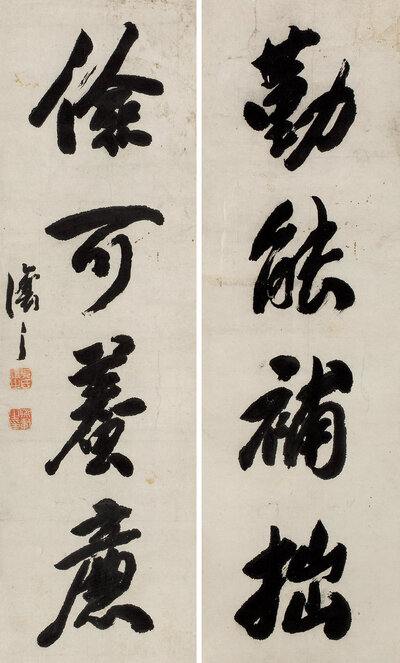 勤能補拙
儉可養廉